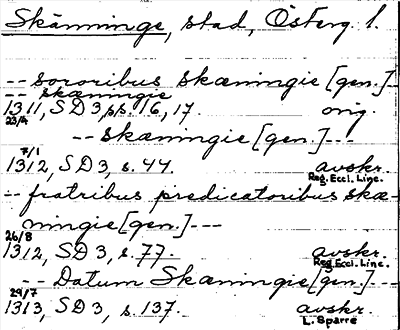 Skänninge, stad, Österg. l.
-- sororibus skæningie [gen.] --
-- skæningie
1311, SD 3, ss. 16, 17. orig.
23/4
-- skæningie [gen.] ---
7/1
1312, SD 3, s. 44. avskr.
Reg. Eccl. Linc.
-- fratribus predicatoribus skæ-
ningie [gen.] ---
26/8
1312, SD 3, s. 77. avskr.
Reg. Eccl. Linc.
-- Datum Skæningie [gen.] ---
29/7
1313, SD 3, s. 137. avskr.
L. Sparre